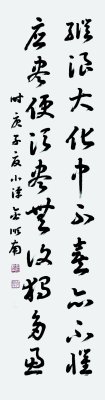 纵浪大化中不喜亦不惧
应尽便须尽无复独多虑
时庚子夏小津安明南